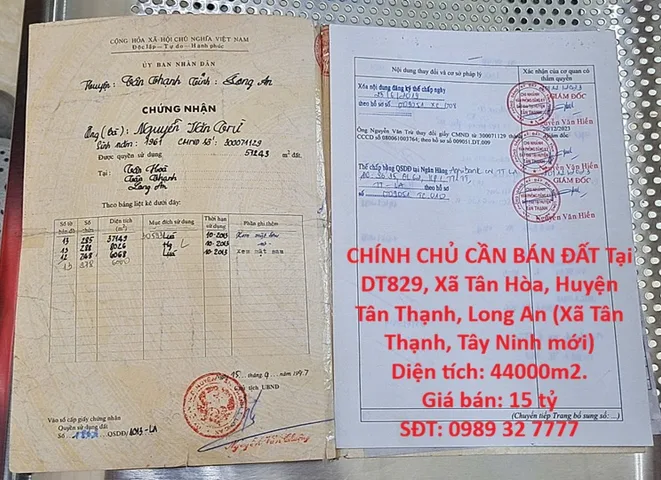 CỘNG HÒA XÃ HỘI CHỦ NGHĨA VIỆT NAM
Độc lập — Tự do — Hạnh phúc
ỦY BAN NHÂN DÂN
Huyện: Tân Thạnh Tỉnh: Long An
CHỨNG NHẬN
Ông (bà): Nguyễn Văn Trừ
Sinh năm: 1961 CMND số: 300071129
Được quyền sử dụng m² đất
Tại: Tân Hoà
Tân Thạnh
Long An
Theo bảng liệt kê dưới đây:
Số tờ bản đồ Số thửa Diện tích (m²) Mục đích sử dụng Thời hạn sử dụng Phần ghi thêm
13 285 Lúa 10-2013
13 288 10-2013
12 248 6068 Lúa 10-2013
13 378
15 tháng 9 năm 1997
Chủ tịch UBND
Vào sổ cấp giấy chứng nhận
Quyền sử dụng đất
Số QSDĐ/ 1013-LA
Nội dung thay đổi và cơ sở pháp lý
Xác nhận của cơ quan có thẩm quyền
Xóa nội dung đăng ký thế chấp ngày
theo hồ sơ số
GIÁM ĐỐC
Nguyễn Văn Hiền
Ông Nguyễn Văn Trừ thay đổi giấy CMND số 300071129 thành
CCCD số 080061003764 theo hồ sơ số 009051.DT.009
/12/2023
GIÁM ĐỐC
Nguyễn Văn Hiền
Thế chấp QSDĐ tại Ngân Hàng Agribank CN TT LA
theo hồ số
GIÁM ĐỐC
Nguyễn Văn Hiền
CHÍNH CHỦ CẦN BÁN ĐẤT Tại
DT829, Xã Tân Hòa, Huyện
Tân Thạnh, Long An (Xã Tân
Thạnh, Tây Ninh mới)
Diện tích: 44000m2.
Giá bán: 15 tỷ
SĐT: 0989 32 7777
(Chuyển tiếp Trang bổ sung số: ...)